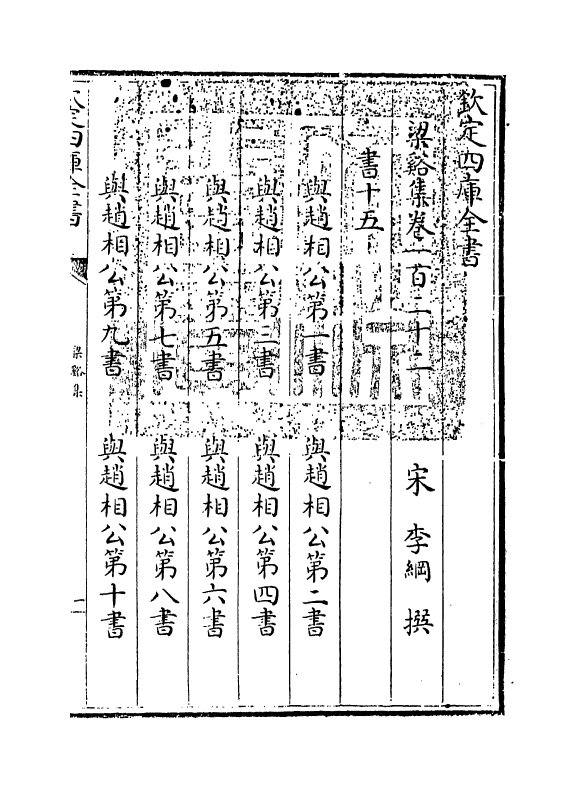 欽定四庫全書
梁谿集卷一百二十二
宋 李綱 撰
書十五
與趙相公第一書
與趙相公第二書
與趙相公第三書
與趙相公第四書
與趙相公第五書
與趙相公第六書
與趙相公第七書
與趙相公第八書
與趙相公第九書
與趙相公第十書
欽定四庫全書
梁谿集
一